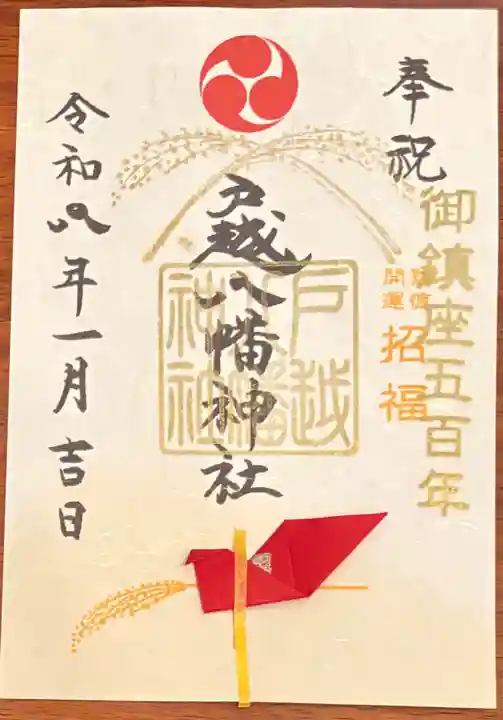 奉祝
御鎮座五百年
開運
招福
戸越八幡神社
戸越
八幡
神社
令和八年一月吉日